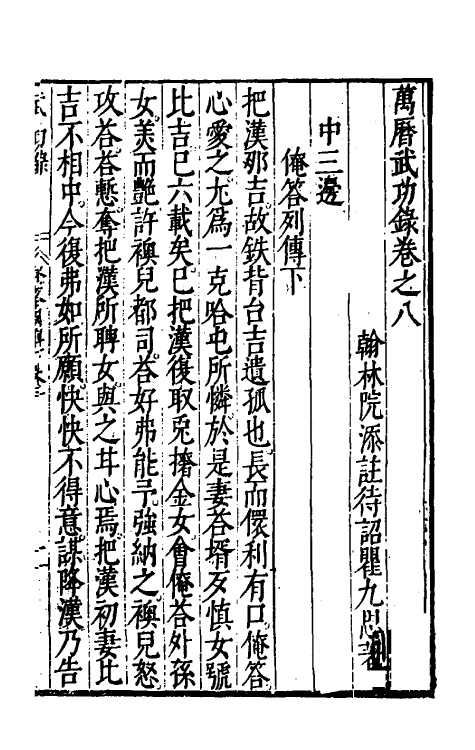 萬曆武功錄卷之八
翰林院添註待詔瞿九思著
中三邊
俺答列傳下
把漢那吉故鉄背台吉遺孤也長而儇利有口俺答
心愛之尢爲一克哈屯所憐於是妻荅壻歹慎女號
比吉已六載矣已把漢復取兎撦金女會俺荅外孫
女美而艷許襖兒都司荅好弗能予強納之襖兒怒
攻荅荅慙奪把漢所聘女與之甘心焉把漢初妻比
吉不相中今復弗如所願怏怏不得意謀降漢乃告